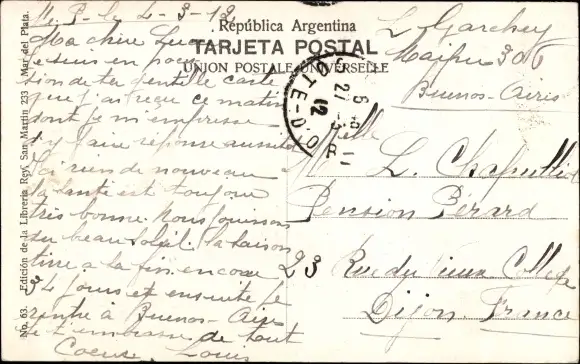 M. P. le 4-3-12
Ma chère Lucie
Je suis en posses
sion de ta gentille carte
que j'ai reçue ce matin
dont je m'empresse
d'y faire réponse aussitôt
Ici rien de nouveau
la santé est toujours
très bonne. nous jouissons
du beau soleil. la saison
tire a la fin encore
3 4 jours et ensuite je
rentre à Buenos-Aires
Je t'embrasse de tout
Coeur Louis
República Argentina
TARJETA POSTAL
UNION POSTALE UNIVERSELLE
L. Garchey
Maipu 306
Buenos-Aires
COTE-D'O
6
27-3
12
Mlle
L.
Pension Bérard
23 Rue du Vieux Collège
Dijon. France
No. 63. Edición de la Librería Rey, San Martín 233 Mar del Plata.